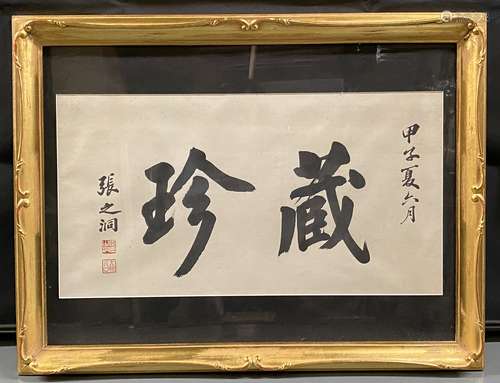 甲子夏六月
藏珍
張之洞